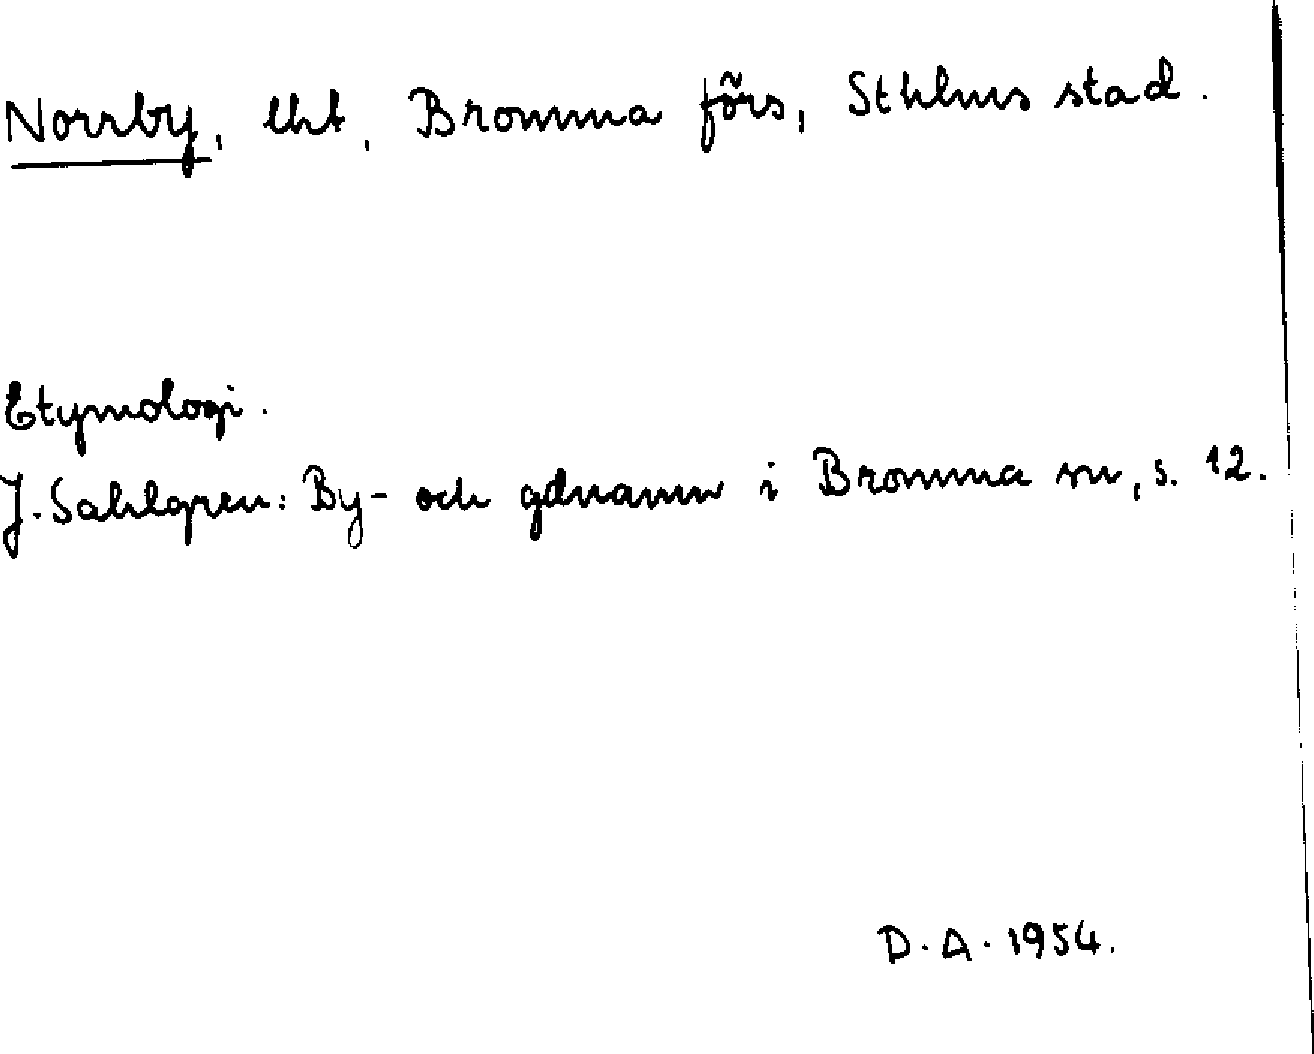 Norrby, lht, Bromma förs, Sthlms stad.
Etymologi.
J. Sahlgren: By- och gdnamn i Bromma sn, s. 12.
D. A. 1954.